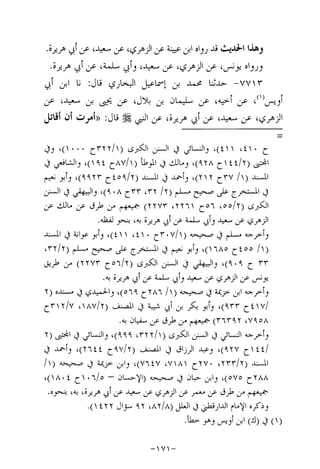 وهذا الحديث قد رواه ابن عيينة عن الزهري، عن سعيد، عن أبي هريرة.
ورواه يونس، عن الزهري، عن سعيد، وأبي سلمة، عن أبي هريرة.
٧٧١٣- حدثنا محمد بن إسماعيل البخاري قال: نا ابن أبي
أويس(١)، عن أخيه، عن سليمان بن بلال، عن يحيى بن سعيد، عن
الزهري، عن سعيد، عن أبي هريرة، عن النبي ﷺ قال: «أمرت أن أقاتل
=
٤١٠ ح ٤١١)، والنسائي في السنن الكبرى (٣٢٢/١ ح ١٠٠٠)، وفي
المجتبى (١٤٤/٢ ح ٩٢٨)، ومالك في الموطأ (٨٧/١ ح ١٩٤)، والشافعي في
المسند (٣٧/١ ح ٢١٢)، وأحمد في المسند (٤٥٩/٢ ح ٩٩٢٣)، وأبو نعيم
في المستخرج على صحيح مسلم (٢/ ٣٢، ٣٣ ح ٩٠٨)، والبيهقي في السنن
الكبرى (٥٥/٢، ٥٦ ح ٢٢٦١، ٢٢٧٣) جميعهم من طرق عن مالك عن
الزهري عن سعيد وأبي سلمة عن أبي هريرة به، بنحو لفظه.
وأخرجه مسلم في صحيحه (٣٠٧/١ ح ٤١٠، ٤١١)، وأبو عوانة في المسند
(١/ ٤٥٥ ح ١٦٨٥)، وأبو نعيم في المستخرج على صحيح مسلم (٣٢/٢،
٣٣ ح ٩٠٩)، والبيهقي في السنن الكبرى (٥٦/٢ ح ٢٢٧٣) من طريق
يونس عن الزهري عن سعيد وأبي سلمة عن أبي هريرة به.
وأخرجه ابن خزيمة في صحيحه (١/ ٢٨٦ ح ٥٦٩)، والحميدي في مسنده (٢
/٤١٧ ح ٩٣٣)، وأبو بكر بن أبي شيبة في المصنف (١٨٧/٢، ٣١٢/٧ ح
٧٩٥٨، ٣٦٣٩٢) جميعهم من طرق عن سفيان به.
وأخرجه النسائي في السنن الكبرى (٣٢٢/١، ٩٩٩)، والنسائي في المجتبى (٢
/١٤٤ ح ٩٢٧)، وعبد الرزاق في المصنف (٩٧/٢ ح ٢٦٤٤)، وأحمد في
المسند (٢٣٣/٢، ٢٧٠ ح ٧١٨١، ٧٦٤٧)، وابن خزيمة في صحيحه (١/
٢٨٨ ح ٥٧٥)، وابن حبان في صحيحه (الإحسان – ١٠٦/٥ ح ١٨٠٤)،
جميعهم من طرق عن معمر عن الزهري عن سعيد عن أبي هريرة، به، بنحوه.
وذكره الإمام الدارقطني في العلل (٨٢/٨، ٩٢ سؤال ١٤٢٢).
(١) في (ك) ابن أويس وهو خطأ.
-١٧١-